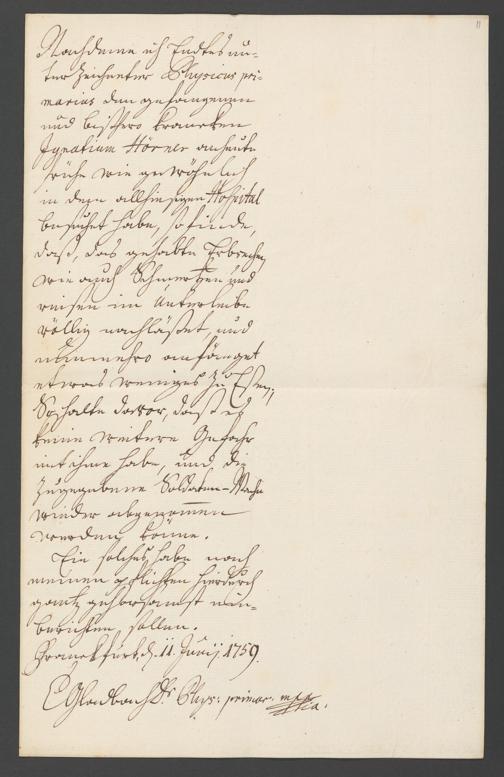 11
Nachdeme ich Endtes un-
terzeichneter Physicus pri-
marius den gefangenen
und bißhero krancken
Ignatium Hörner anheute
frühe wie gewöhnlich
in dem allhiesigen Hospital
besuchet habe, so finde,
daß, das gehabte Erbrechen,
wie auch Schmertzen und
reisen im Unterleibe
völlig nachläßet, und
nunmehro anfänget
etwas weniges zu Eßen,
So halte davor, daß es
keine weitere Gefahr
mit ihme habe, und die
zugegebene Soldaten-Wacht
wieder abgenommen
werden könne.
Ein solches habe nach
meinen pflichten hierdurch
gantz gehorsamst ein-
berichten sollen.
Franckfurt, d. 11 Junij 1759.
Gladbach Dr Phys: primar: mppria.